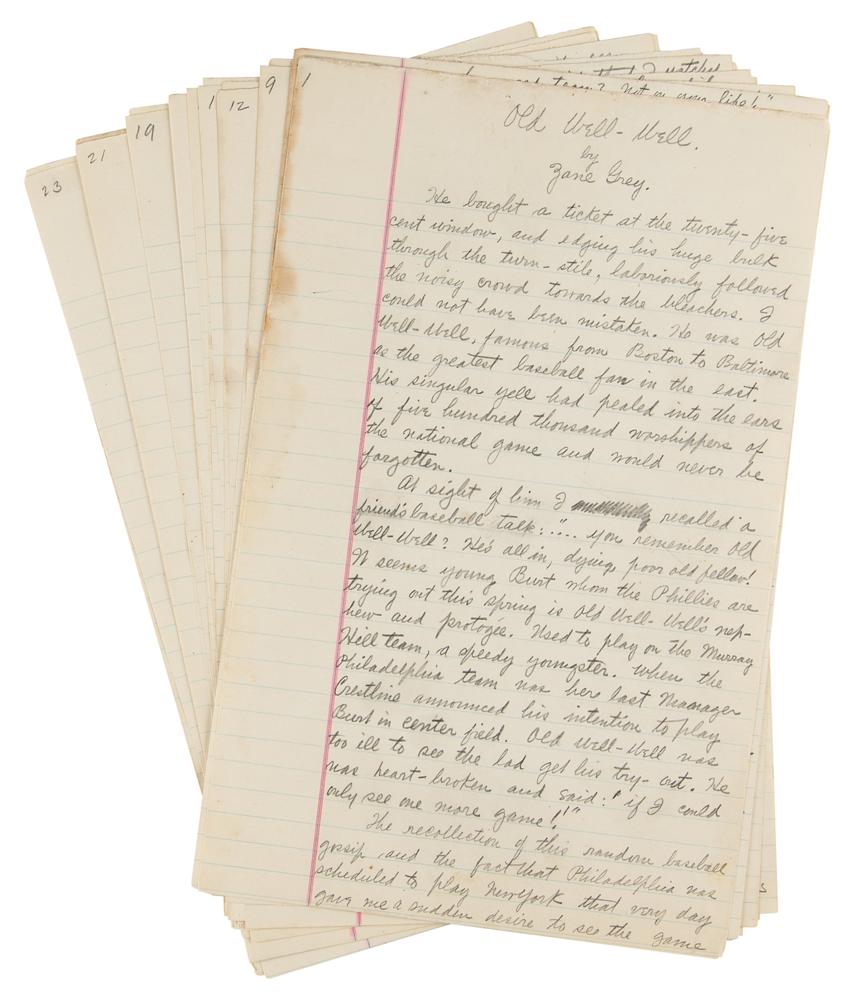 23
21
19
1
12
9
1
I watched
team? Not on your life!"
Old Well-Well.
by
Zane Grey.
He bought a ticket at the twenty-five
cent window, and edging his huge bulk
through the turn-stile, laboriously followed
the noisy crowd towards the bleachers. I
could not have been mistaken. He was Old
Well-Well, famous from Boston to Baltimore
as the greatest baseball fan in the east.
His singular yell had pealed into the ears
of five hundred thousand worshippers of
the national game and would never be
forgotten.
At sight of him I recalled a
friend's baseball talk: ".... you remember Old
Well-Well? He's all in, dying, poor old fellow!
It seems young Burt whom the Phillies are
trying out this spring is Old Well-Well's nep-
hew and protogée. Used to play on the Murray
Hill team, a speedy youngster. When the
Philadelphia team was here last Manager
Crestline announced his intention to play
Burt in center field. Old Well-Well was
too ill to see the lad get his try-out. He
was heart-broken and said: 'if I could
only see one more game!'"
The recollection of this random baseball
gossip, and the fact that Philadelphia was
scheduled to play New York that very day
gave me a sudden desire to see the game